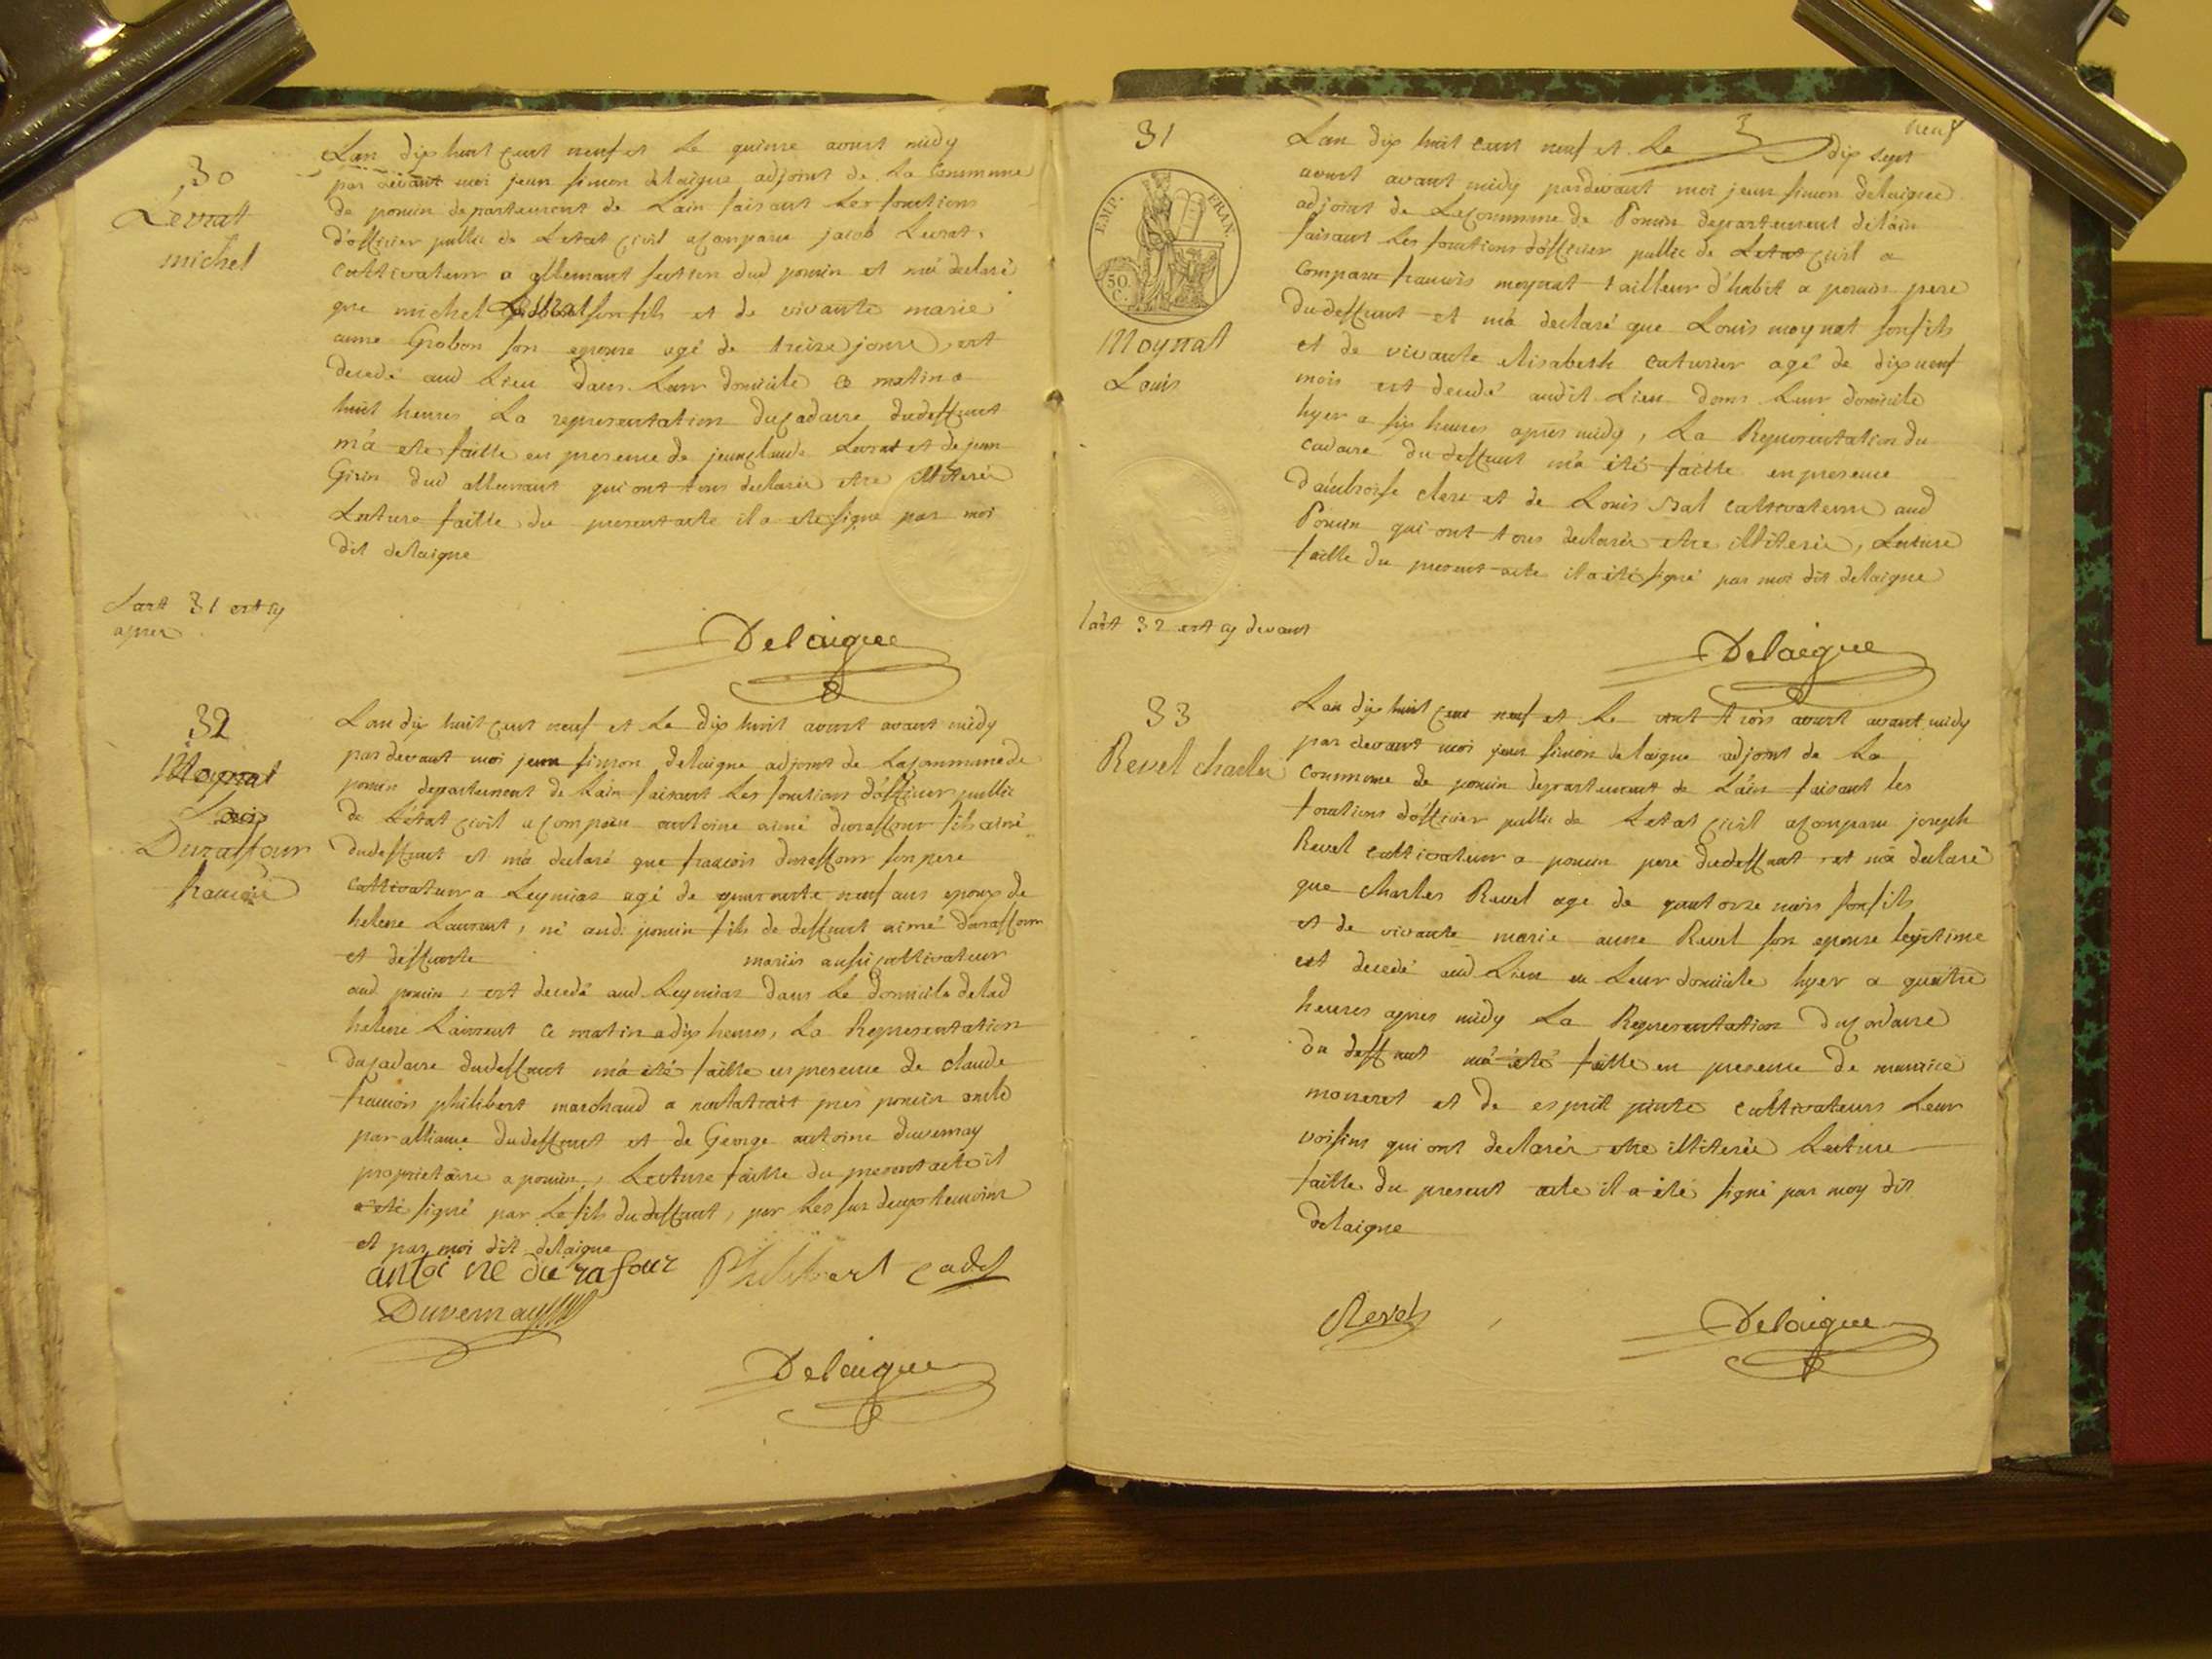 30
Levrat
michel
Lan dix huit cent neuf et le quinze aoust midy
par devant moi jean simon delaigue adjoint de la Commune
de poncin departement de Lain faisant les fonctions
d'officier public de Letat civil a comparu jacob Levrat
Cultivateur a allemant section dud poncin et m'a declaré
que michel Levrat son fils et de vivante marie
anne Grobon son epouse agé de treize jours, est
decedé aud Lieu dans Leur domicile ce matin a
huit heures La representation du cadavre du deffunt
m'a ete faitte en presence de jean claude Levrat et de jean
Girin dud allemant qui ont tous declarés etre illiterés
Lecture faitte du present acte il a ete signe par moi
dit delaigue
Lart 31 est cy
apres
Delaigue
32
Moynat
Louis
Duraffour
francois
Lan dix huit cent neuf et Le dix huit aoust avant midy
par devant moi jean simon delaigue adjoint de La commune de
poncin departement de Lain faisant Les fonctions d'officier public
de L'etat civil a comparu antoine aimé duraffour fils ainé
du deffunt et m'a declaré que francois duraffour son pere
cultivateur a Leymiaz agé de quarante neuf ans epoux de
helene Laurent, né aud. poncin fils de deffunt aimé duraffour
et deffunte mariés aussi cultivateur
aud poncin, est decedé aud Leymiaz dans Le domicile delad
helene Laurent ce matin a dix heures, La Representation
du cadavre du deffunt m'a été faitte en presence de claude
francois philibert marchand a près poncin oncle
par alliance du deffunt et de George antoine duvernay
proprietaire a poncin, Lecture faitte du present acte il
a été signé par Le fils du deffunt, par Les sus deux temoins
et par moi dit delaigue
antoi ne du rafour Philibert cadet
Duvernay
Delaigue
neuf
31
EMP. FRAN.
50
C.
Moynat
Louis
Lan dix huit cent neuf et Le dix sept
aoust avant midy pardevant moi jean simon delaigue
adjoint de La commune de Poncin departement de lain
faisant Les fonctions d'officier public de Letat civil a
comparu francois moynat tailleur d'habit a poncin pere
du deffunt et m'a declaré que Louis moynat son fils
et de vivante elisabeth caturier agé de dix neuf
mois est decedé audit Lieu dans Leur domicile
hyer a six heures apres midy, La Representation du
cadavre du deffunt m'a été faitte en presence
d'ambroise clerc et de Louis Bal cultivateurs aud
Poncin qui ont tous declarés etre illiterés, Lecture
faitte du present acte il a été signé par moi dit delaigue
lart 32 est cy devant
Delaigue
33
Revel charles
Lan dix huit cent neuf et Le vint trois aoust avant midy
par devant moi jean simon delaigue adjoint de La
commune de poncin departement de L'ain faisant les
fonctions d'officier public de Letat civil a comparu joseph
Revel cultivateur a poncin pere du deffunt et m'a declaré
que charles Revel age de quatorze mois son fils
et de vivante marie anne Revel son epouse legitime
est decedé aud Lieu en Leur domicile hyer a quatre
heures apres midy La Representation du cadavre
du deffunt m'a été faitte en presence de maurice
moneret et de esprit pinte cultivateurs Leur
voisins qui ont declarés etre illiterés Lecture
faitte du present acte il a été signé par moy dit
delaigue
Revel
Delaigue